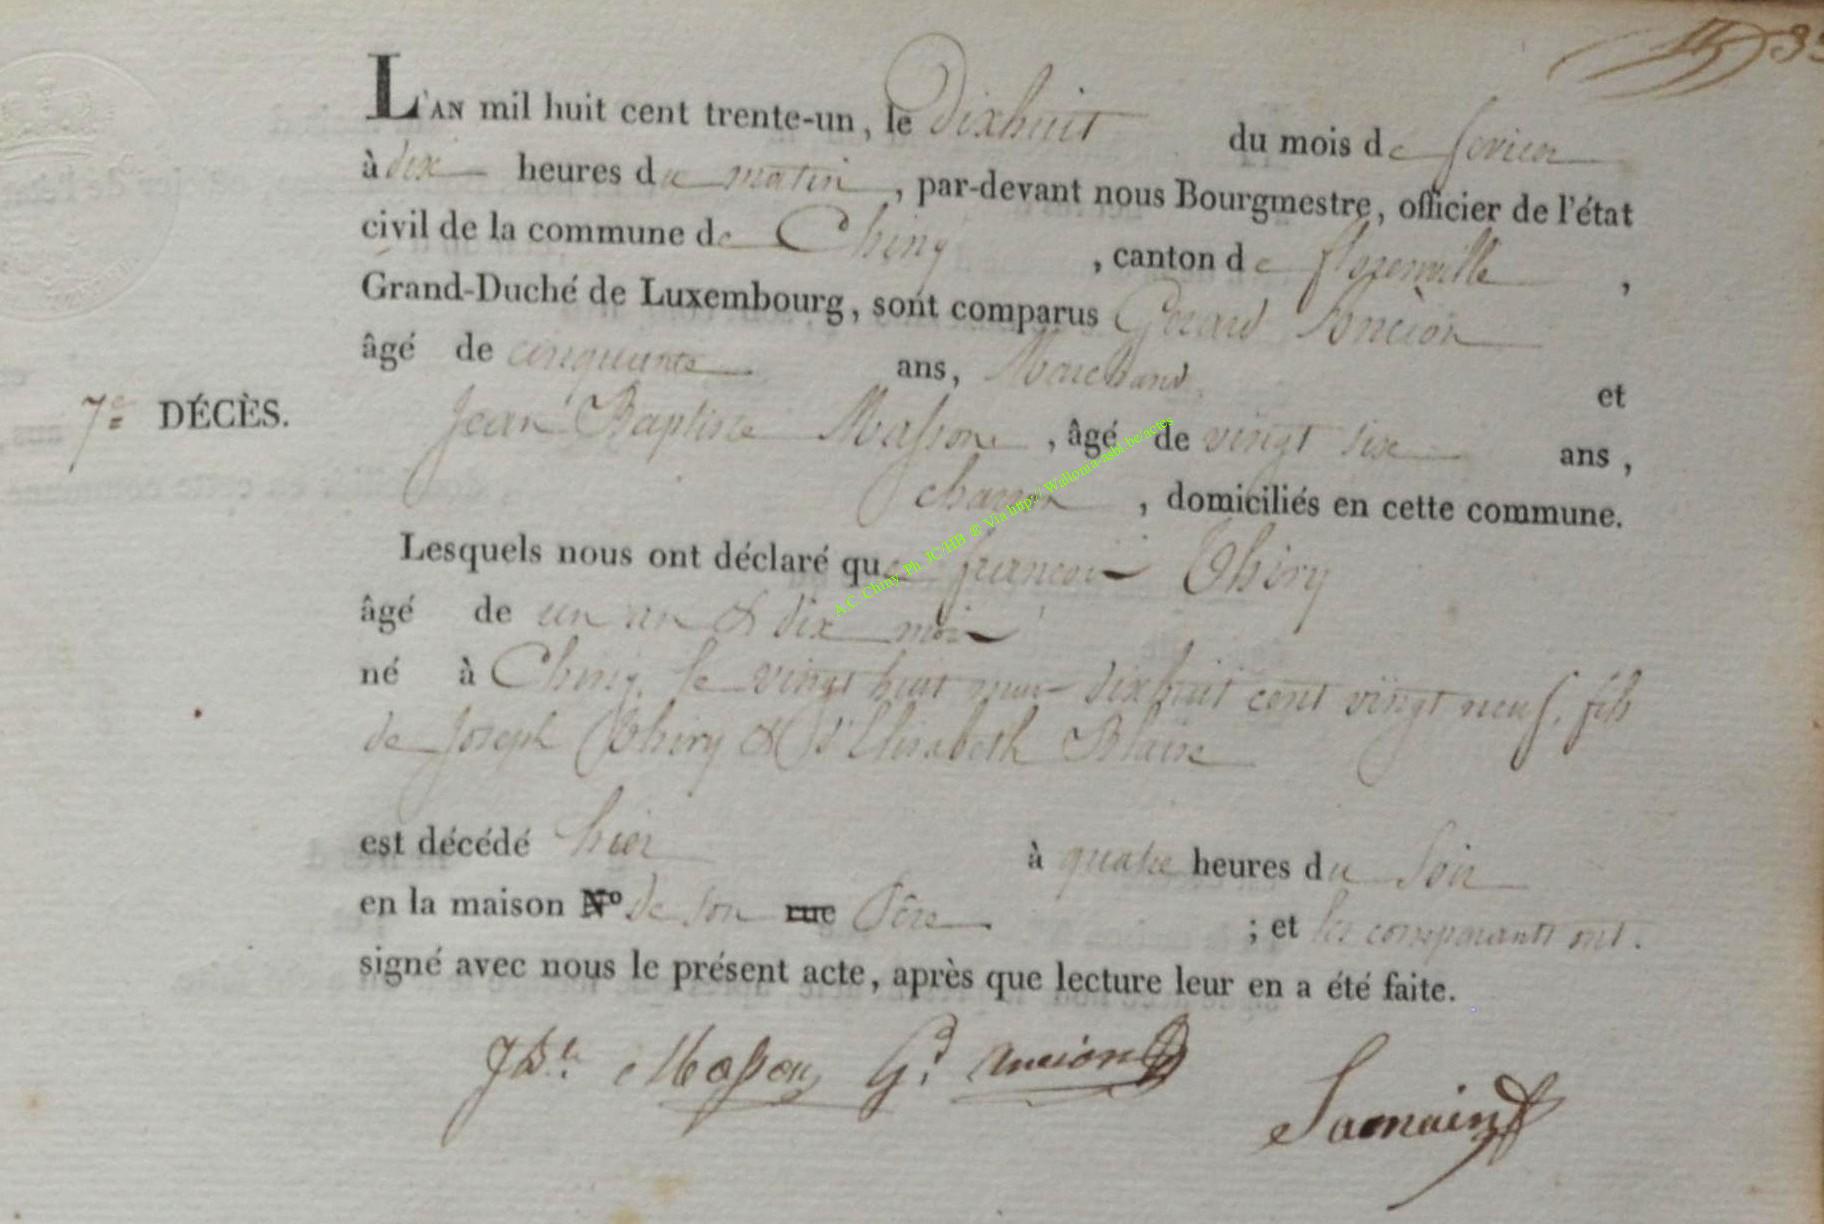 L'AN mil huit cent trente-un, le dixhuit du mois de fevrier
à dix heures du matin, par-devant nous Bourgmestre, officier de l'état
civil de la commune de Chiny, canton de florenville,
Grand-Duché de Luxembourg, sont comparus Gerard Ancion
âgé de cinquante ans, Marchand et
7e DÉCÈS.
Jean Baptiste Massone, âgé de vingt six ans,
charon, domiciliés en cette commune.
Lesquels nous ont déclaré que françois Thiry
âgé de un an & dix mois
né à Chiny, le vingt huit mars dixhuit cent vingt neuf, fils
de Joseph Thiry & d'Elisabeth Blaise
est décédé hier à quatre heures du Soir
en la maison N° de son rue Père ; et les comparants ont
signé avec nous le présent acte, après que lecture leur en a été faite.
JBte Masson Gd Ancion
Samain
A.C. Chiny Ph JC/HB @ Via http:// Wallonia-asbl.be/actes